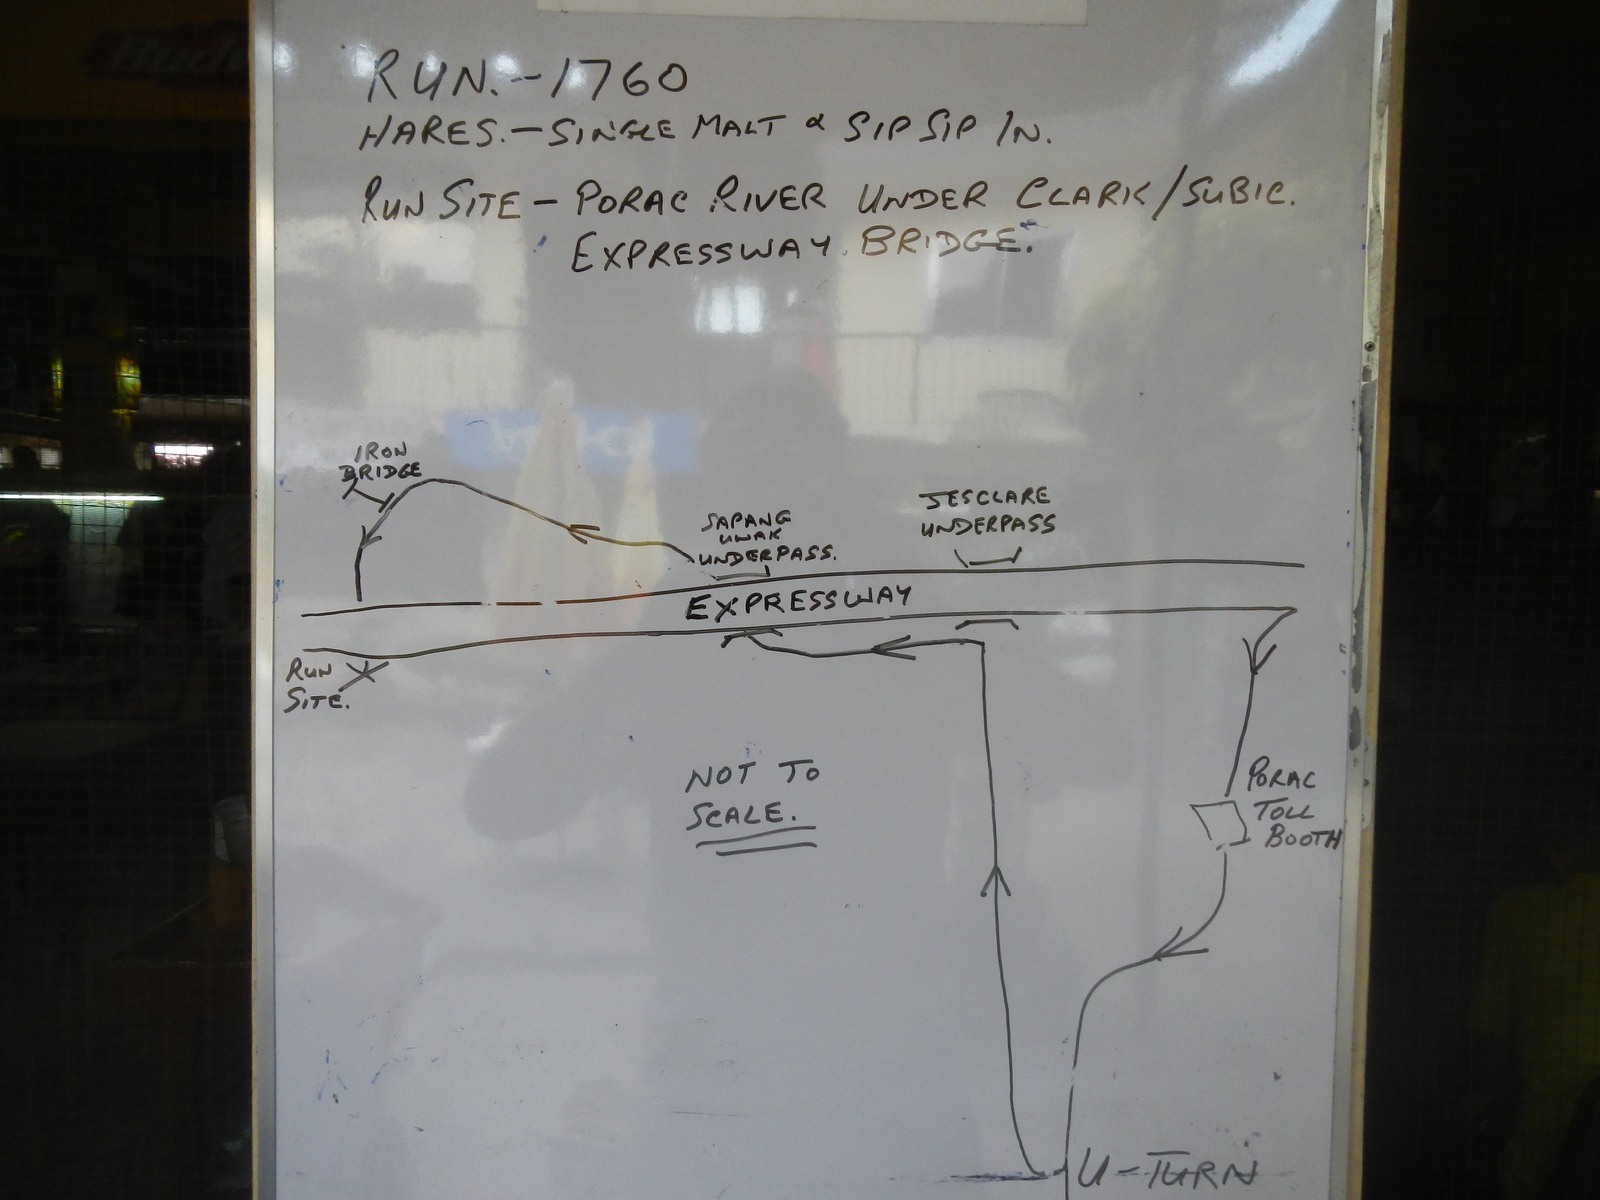 RUN.-1760
HARES.-SINGLE MALT & SIP SIP IN.
RUN SITE - PORAC RIVER UNDER CLARK/SUBIC.
EXPRESSWAY BRIDGE.
IRON
BRIDGE
SAPANG
UWAK
UNDERPASS.
JESCLARE
UNDERPASS
EXPRESSWAY
RUN
SITE.
NOT TO
SCALE.
PORAC
TOLL
BOOTH
U-TURN